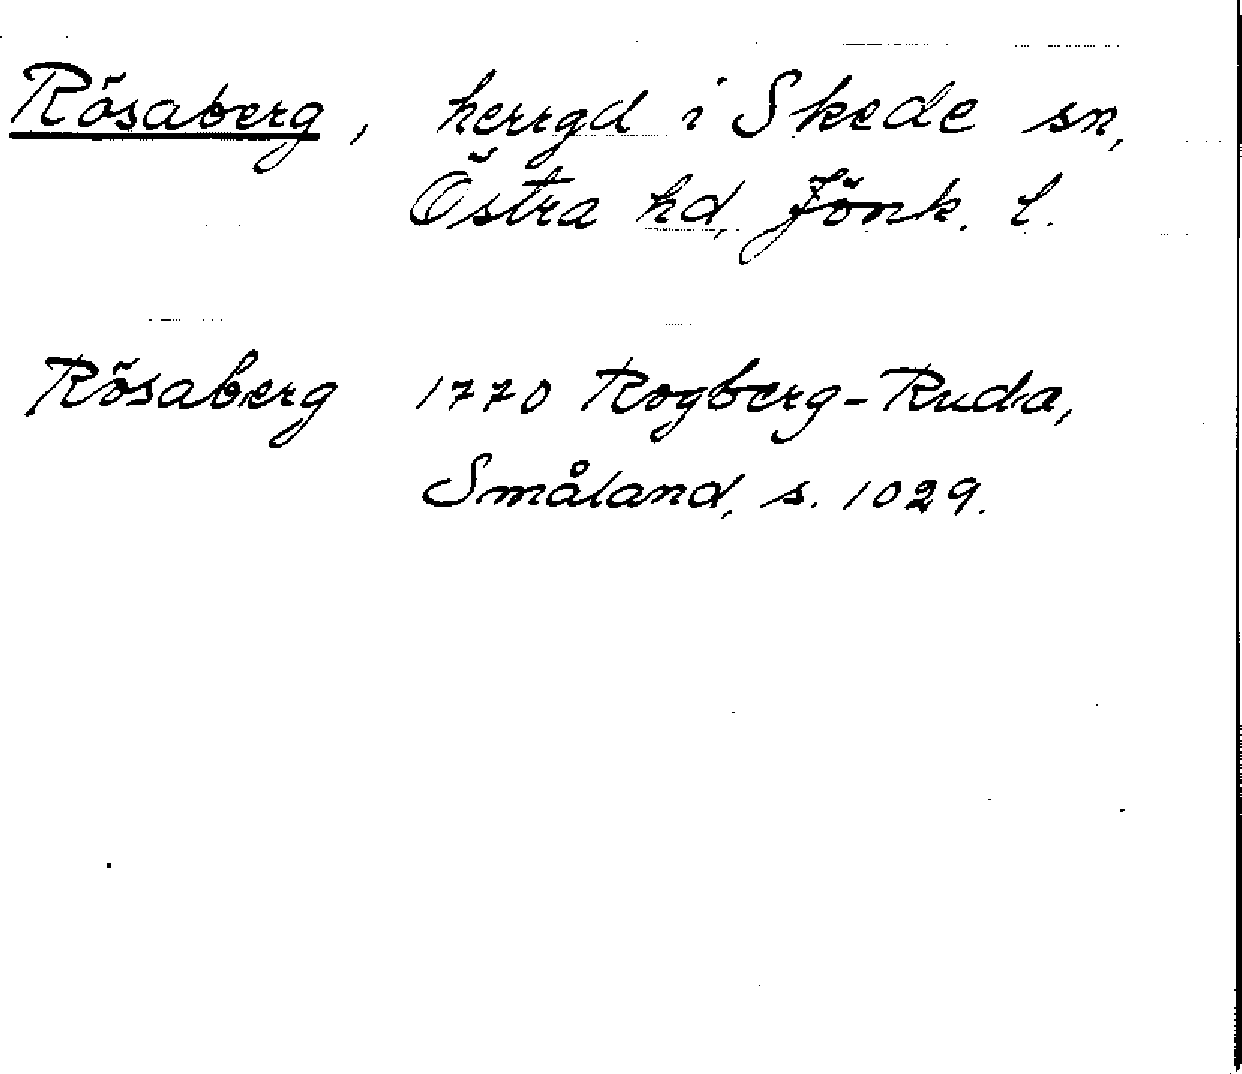 Rösaberg, herrgd i Skede sn,
Östra hd, Jönk. l.
Rösaberg 1770 Rogberg-Ruda,
Småland, s. 1029.